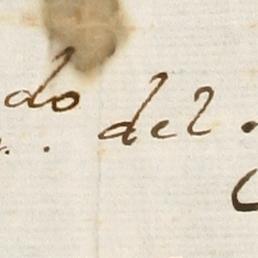 do del